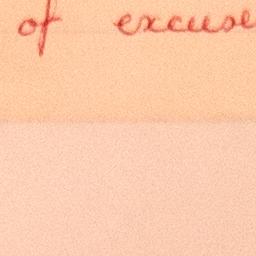 of excuse